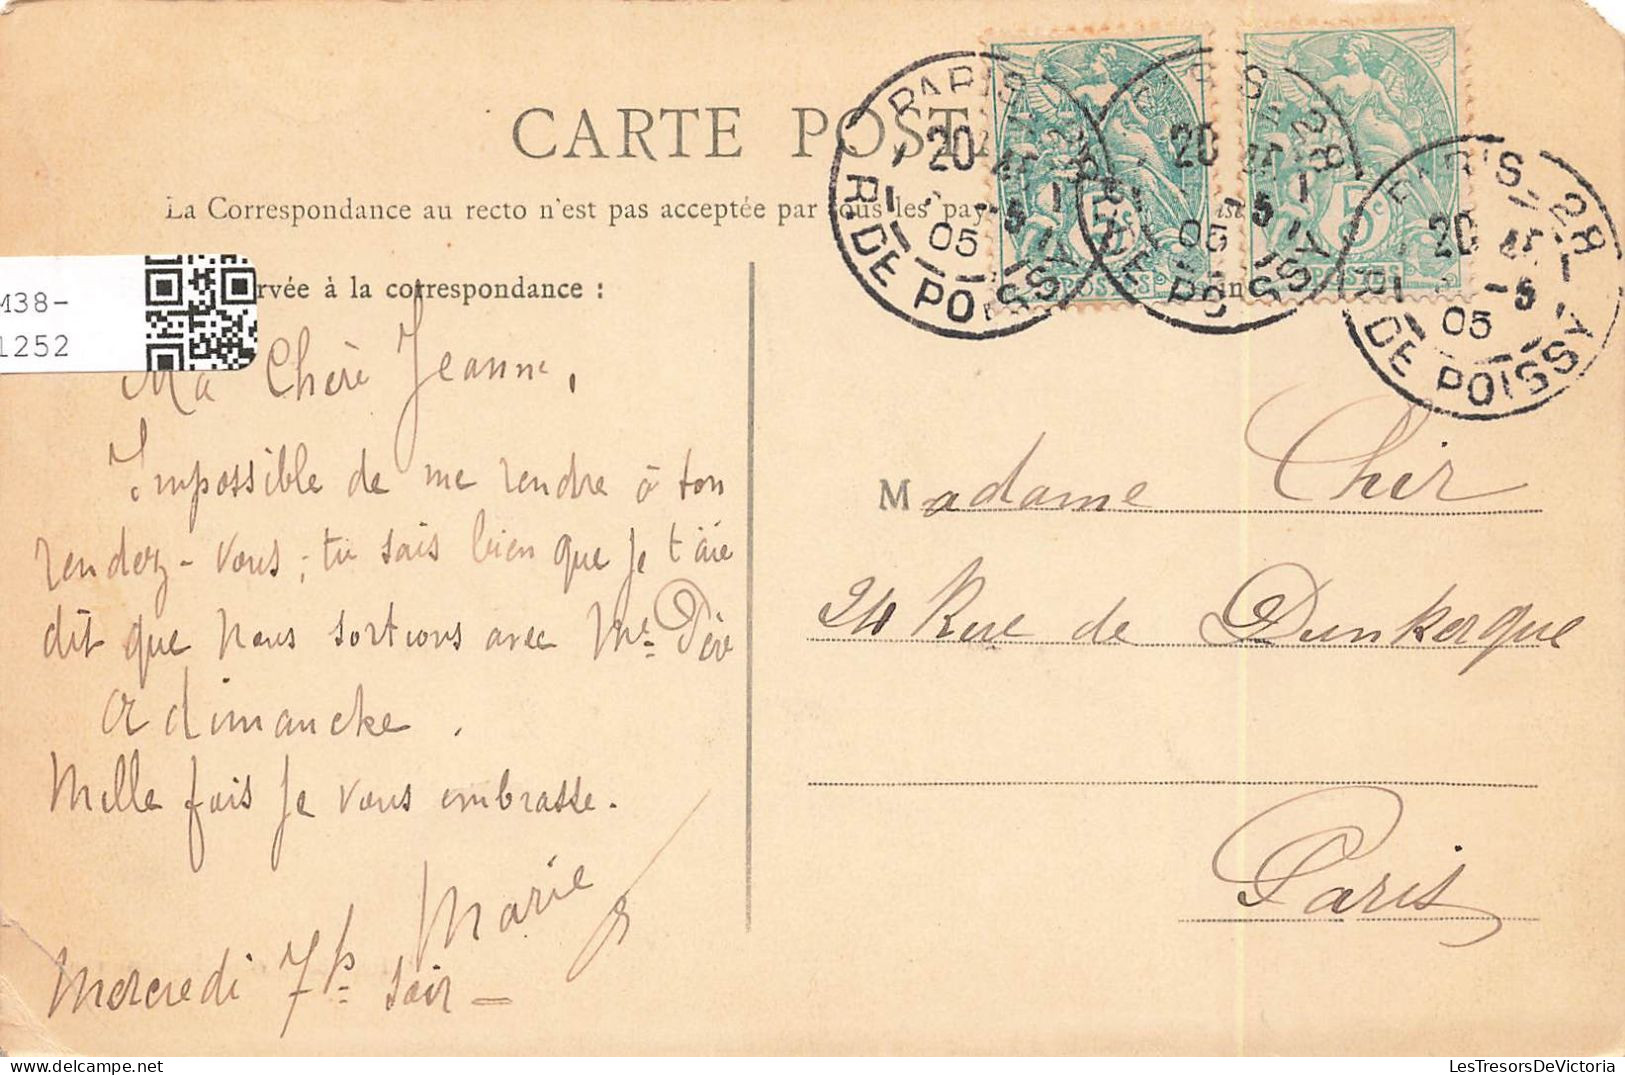 CARTE POST
La Correspondance au recto n'est pas acceptée par tous les pay
rvée à la correspondance :
M38-
1252
PARIS
20
05
R. DE POISSY
20
05
5c
POSTES
5c
POSTES
PARIS - 28
20
-5
05
R. DE POISSY
Ma Chère Jeanne,
Impossible de me rendre à ton
rendez-vous ; tu sais bien que je t'aie
dit que nous sortions avec
dimanche.
Mille fois je vous embrasse.
Marie
Mercredi 7h soir -
Madame Chér
24 Rue de Dunkerque
Paris
LesTresorsDeVictoria